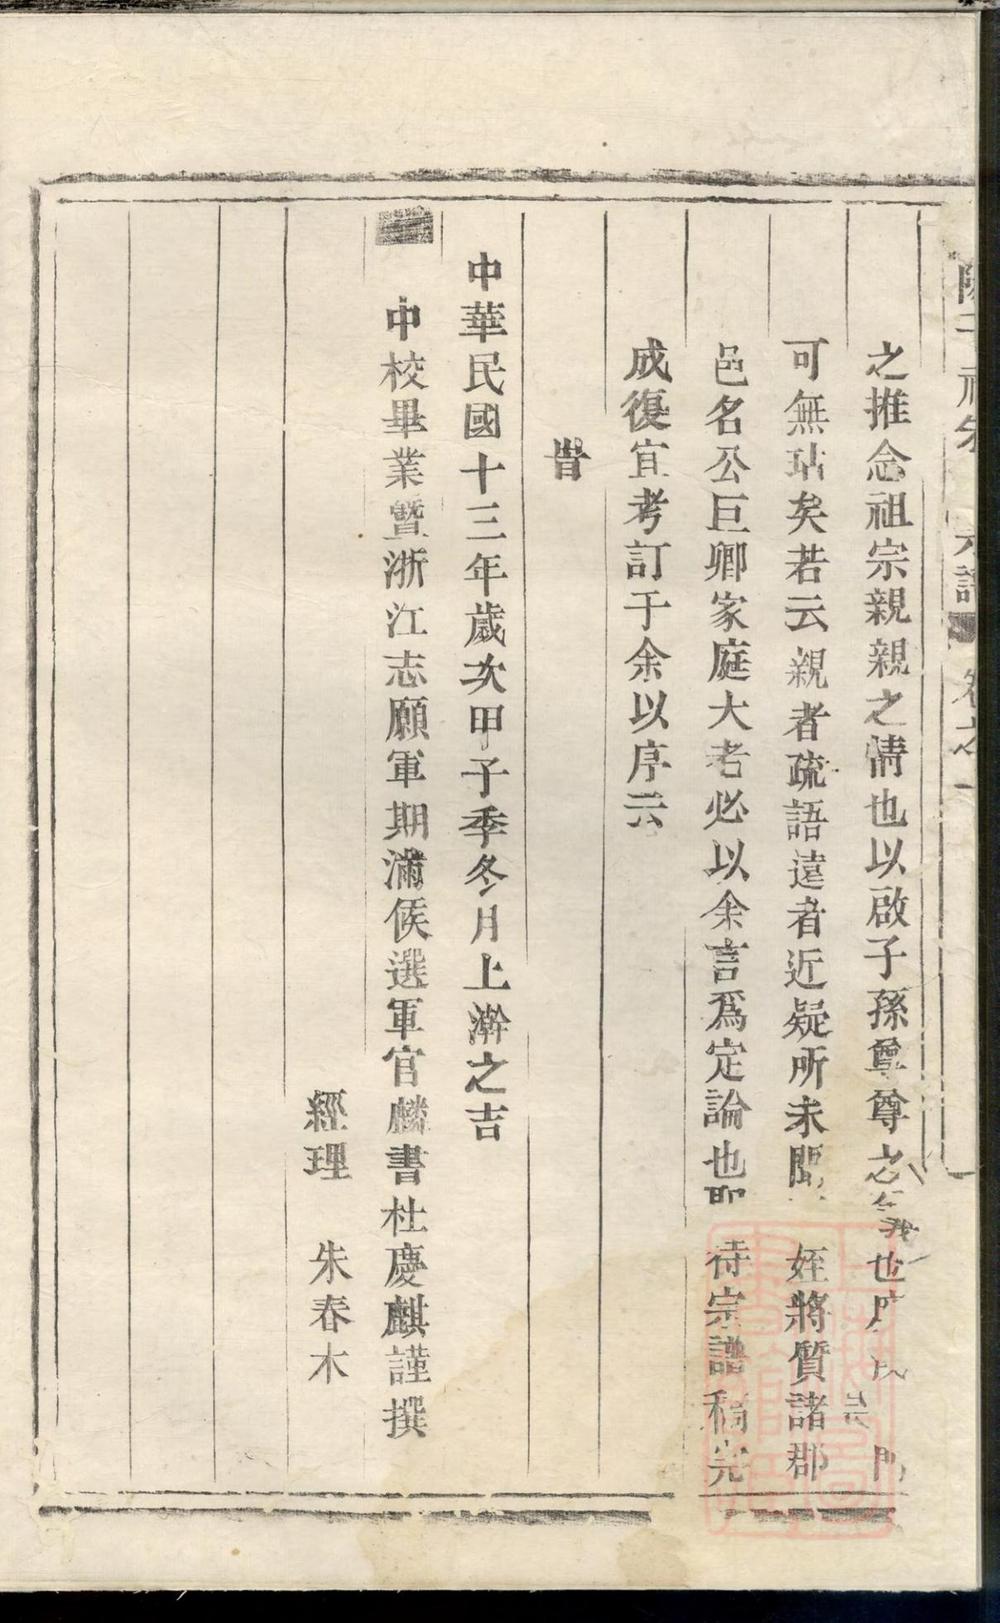 之推念祖宗親親之情也以啟子孫尊尊之義也
可無玷矣若云親者疏語遠者近疑所未聞 姪將質諸郡
邑名公巨卿家庭大老必以余言爲定論也 待宗譜稿完
成復宜考訂于余以序云
旹
中華民國十三年歲次甲子季冬月上澣之吉
中校畢業暨浙江志願軍期滿候選軍官麟書杜慶麒謹撰
經理 朱春木